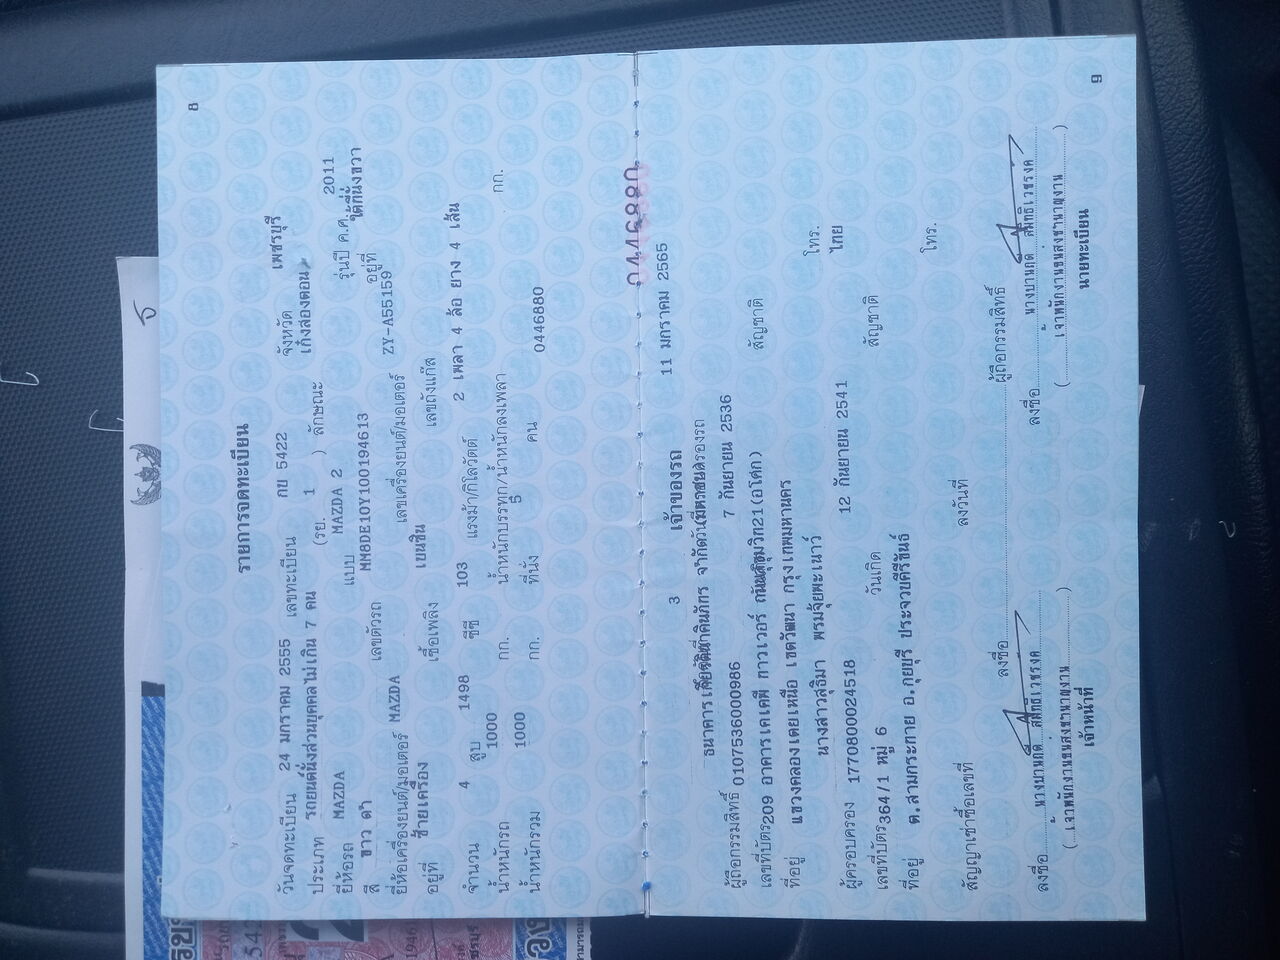 8
รายการจดทะเบียน
วันจดทะเบียน 24 มกราคม 2555 เลขทะเบียน กย 5422 จังหวัด เพชรบุรี
ประเภท รถยนต์นั่งส่วนบุคคลไม่เกิน 7 คน (รย. 1 ) ลักษณะ เก๋งสองตอน
ยี่ห้อรถ MAZDA แบบ MAZDA 2 รุ่นปี ค.ศ. 2011
สี ขาว ดำ เลขตัวรถ MM8DE10Y100194613 อยู่ที่ ใต้ที่นั่งขวา
ยี่ห้อเครื่องยนต์/มอเตอร์ MAZDA เลขเครื่องยนต์/มอเตอร์ ZY-A55159
อยู่ที่ ซ้ายเครื่อง เชื้อเพลิง เบนซิน เลขถังแก๊ส
จำนวน 4 สูบ 1498 ซีซี 103 แรงม้า/กิโลวัตต์ 2 เพลา 4 ล้อ ยาง 4 เส้น
น้ำหนักรถ 1000 กก. น้ำหนักบรรทุก/น้ำหนักลงเพลา กก.
น้ำหนักรวม 1000 กก. ที่นั่ง 5 คน 0446880
0446880
3 เจ้าของรถ 11 มกราคม 2565
ธนาคารเกียรตินาคินภัทร จำกัด
ผู้ถือกรรมสิทธิ์ 0107536000986 7 กันยายน 2536
เลขที่บัตร 209 อาคารเคเคพี ทาวเวอร์ 21(อโศก) สัญชาติ
ที่อยู่ แขวงคลองเตยเหนือ เขตวัฒนา กรุงเทพมหานคร โทร.
นางสาวสุธิมา
ผู้ครอบครอง 1770800024518 12 กันยายน 2541 ไทย
เลขที่บัตร 364/1 หมู่ 6 วันเกิด สัญชาติ
ที่อยู่ ต.สามกระทาย อ.กุยบุรี ประจวบคีรีขันธ์ โทร.
สัญญาเช่าซื้อเลขที่ ลงวันที่
ลงชื่อ ผู้ถือกรรมสิทธิ์
ลงชื่อ ลงชื่อ
(เจ้าพนักงานขนส่งชำนาญงาน) (เจ้าพนักงานขนส่งชำนาญงาน)
เจ้าหน้าที่ นายทะเบียน
9